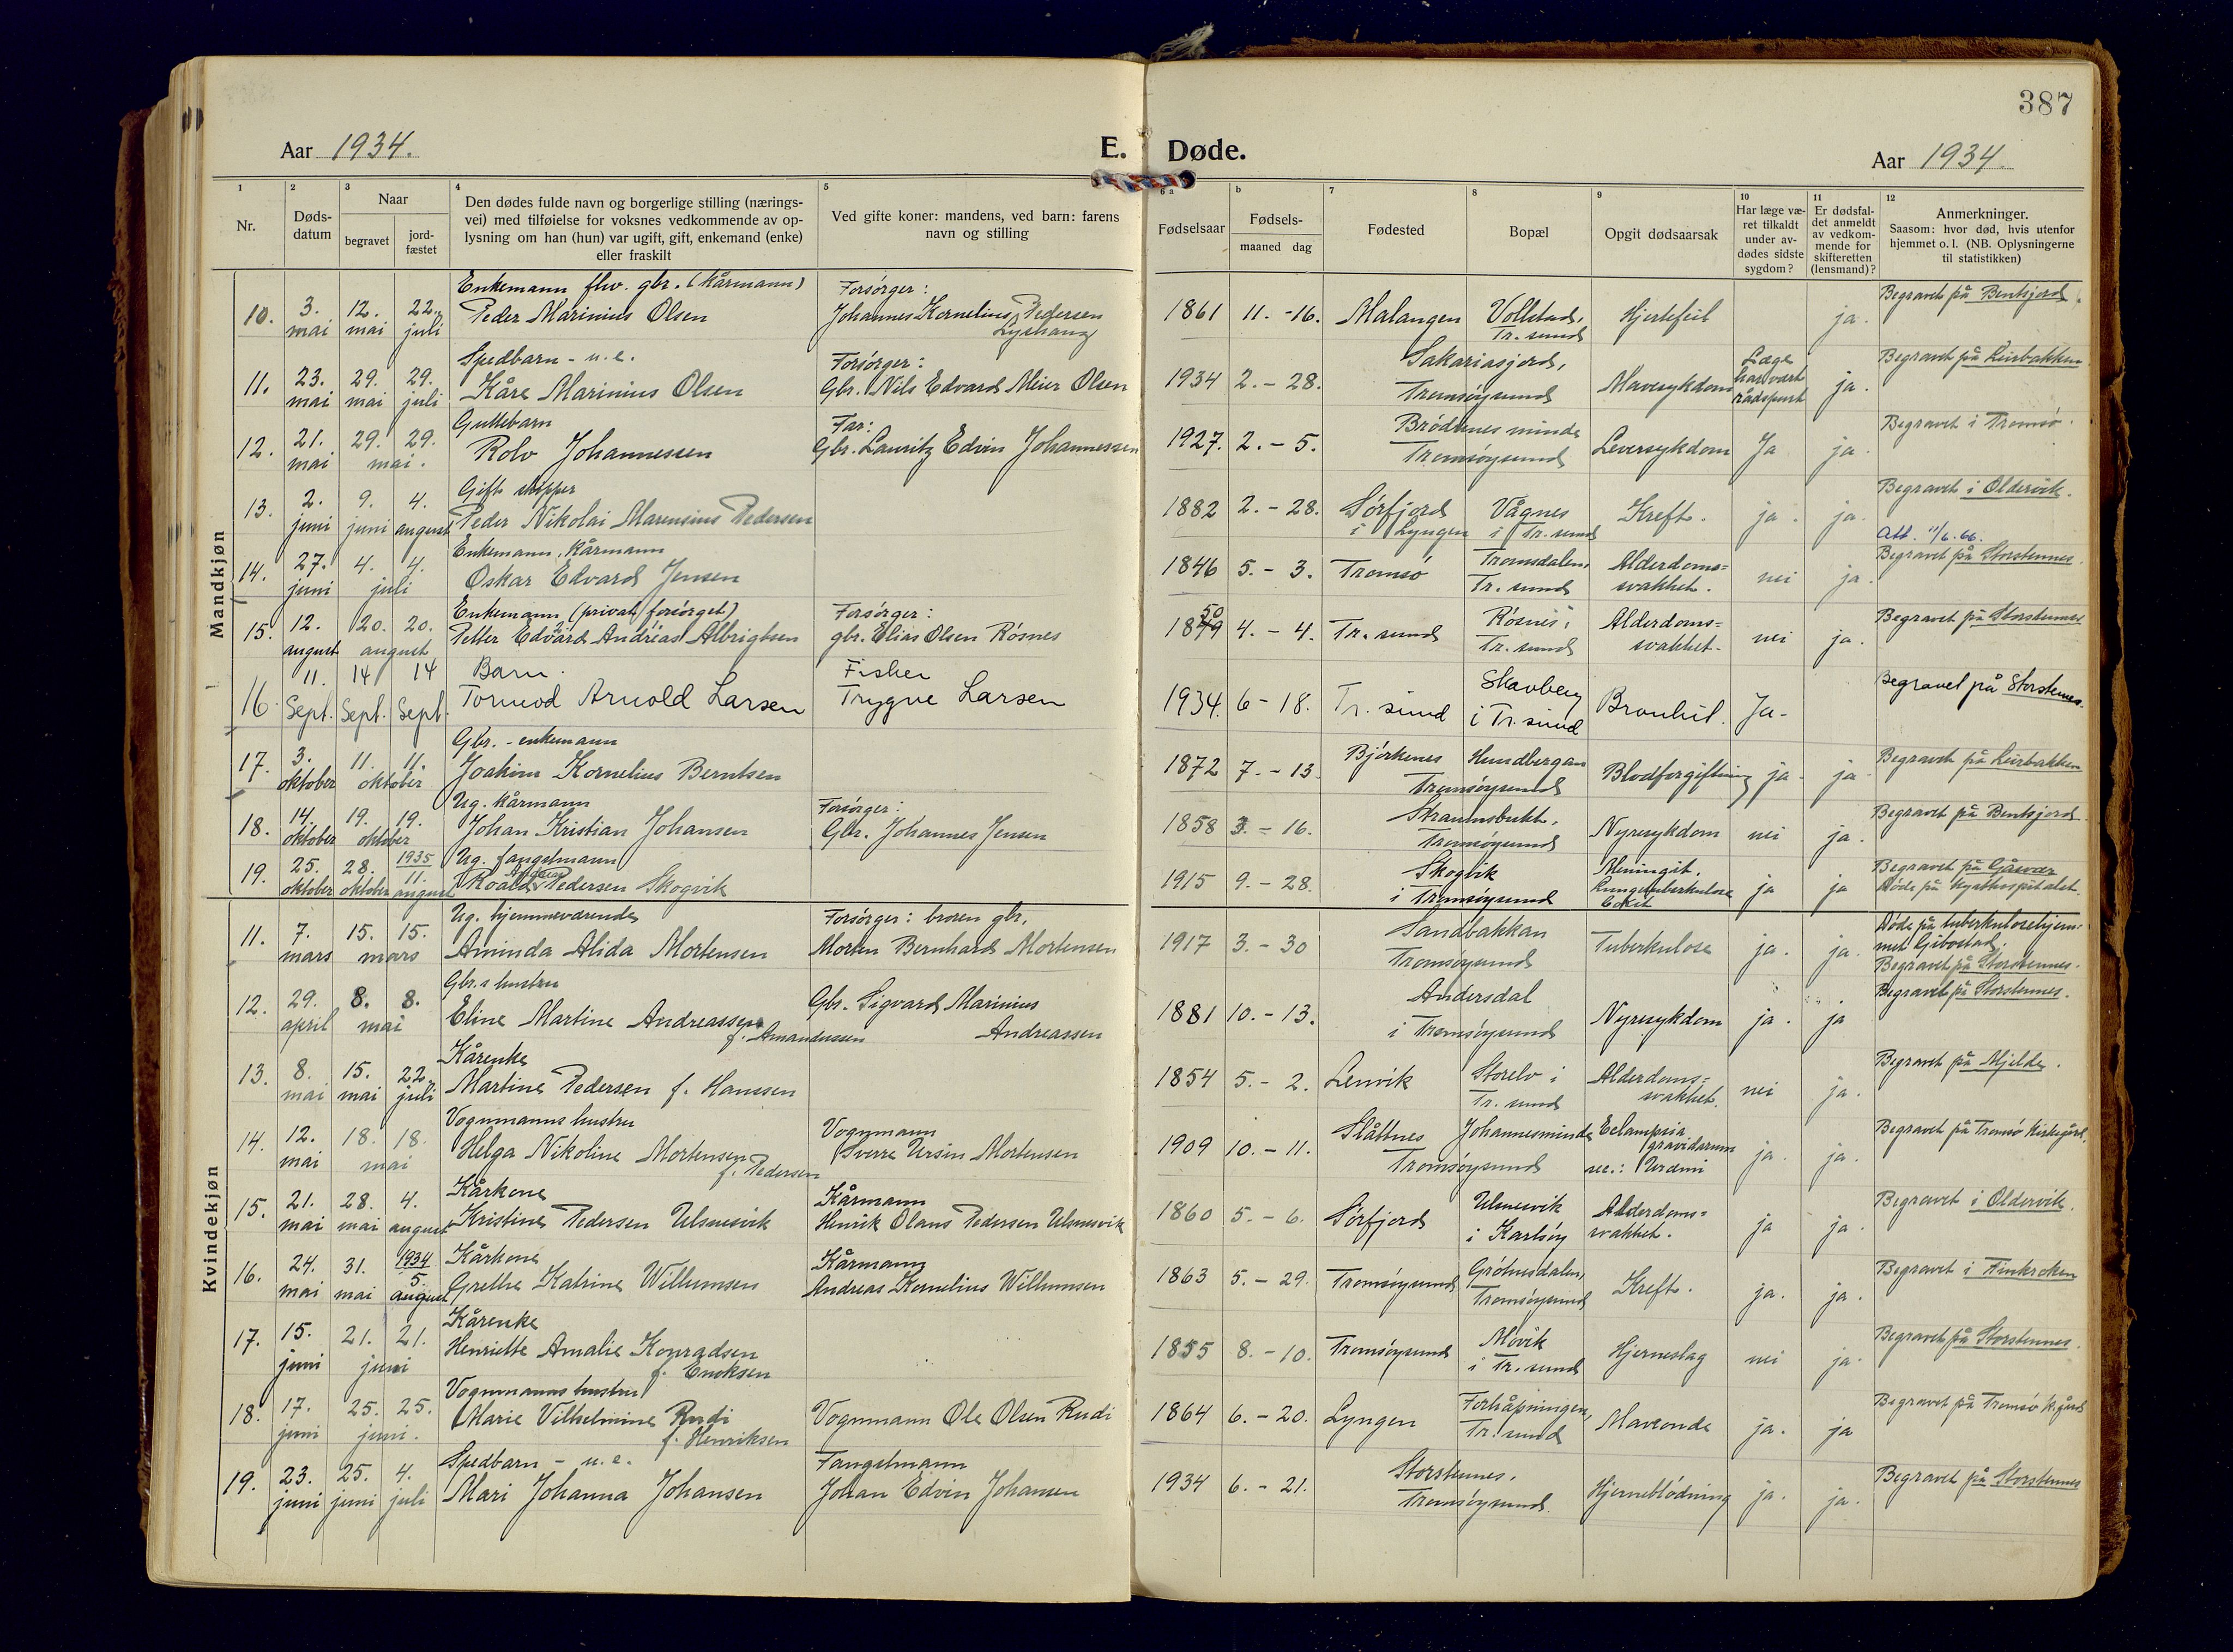 387
Aar 1934.
E. Døde.
Aar 1934.
1 2 3 4 5 6 a b 7 8 9 10 11 12
Nr.
Døds-
datum
Naar
begravet
jord-
fæstet
Den dødes fulde navn og borgerlige stilling (nærings-
vei) med tilføielse for voksnes vedkommende av op-
lysning om han (hun) var ugift, gift, enkemand (enke)
eller fraskilt
Ved gifte koner: mandens, ved barn: farens
navn og stilling
Fødselsaar
Fødsels-
maaned dag
Fødested
Bopæl
Opgit dødsaarsak
Har læge væ-
ret tilkaldt
under av-
dødes sidste
sygdom?
Er dødsfal-
det anmeldt
av vedkom-
mende for
skifteretten
(lensmand)?
Anmerkninger.
Saasom: hvor død, hvis utenfor
hjemmet o. l. (NB. Oplysningerne
til statistikken)
Mandkjøn
Enkemann flw. gbr. (Kårmann) Forsørger: Begravet på Bentsjord.
10. 3. 12. 22. Peder Marinius Olsen Johannes Kornelius Pedersen 1861 11. - 16. Malangen Vollstad, Hjertefeil ja.
mai mai juli Lyshaug Tr. sund
Spedbarn - u.e. Forsørger: Sakariasjord, Læge Begravet på Leirbakken
11. 23. 29. 29. Kåre Marinius Olsen Gbr. Nils Edvard Meier Olsen 1934 2. - 28. Tromsøysund Mavesykdom har vært ja.
mai mai juli rådspurt
Guttebarn Far: Brødrenes minde Begravet i Tromsø.
12. 21. 29. 29. Rolv Johannessen Gbr. Lauritz Edvin Johannessen 1927. 2. - 5. Tromsøysund Leversykdom Ja ja.
mai mai.
Gift skipper Begravet i Oldervik.
13. 2. 9. 4. Peder Nikolai Marensius Pedersen 1882 2. - 28. Sørfjord Vågnes Kreft. ja. ja.
juni juni august i Lyngen i Tr. sund Att. 11/6.66.
Enkemann, Kårmann Tromsdalen, Alderdoms= Begravet på Storstennes.
14. 27. 4. 4. Oskar Edvard Jensen 1846 5. - 3. Tromsø Tr. sund svakhet. nei ja.
juni juli
Enkemann (privat forsørget) Forsørger: 50 Røsnes, Alderdoms= Begravet på Storstennes
15. 12. 20. 20. Petter Edvard Andreas Albrigtsen gbr. Elias Olsen Røsnes 1849 4. - 4. Tr. sund Tr. sund svakhet. nei ja.
august august
Barn. Fisker Skavberg Begravet på Storstennes.
16. 11. 14 14 Tormod Arnold Larsen Trygve Larsen 1934. 6 - 18. Tr. sund i Tr. sund Bronkit. Ja-
Sept. Sept. Sept.
Gbr. - enkemann Begravet på Leirbakken
17. 3. 11. 11. Joakim Kornelius Berntsen 1872 7. - 13 Bjørkenes Hundbergan Blodforgiftning ja. ja.
oktober oktober Tromsøysund
Ug. Kårmann Forsørger: Straumsbukt, Begravet på Bentsjord.
18. 14. 19. 19. Johan Kristian Johansen Gbr. Johannes Jensen 1858 3. - 16. Tromsøysund Nyresykdom nei ja.
oktober oktober
1935 Ug. fangstmann Skogvik Meningit. Begravet på Gåsvær
19. 25. 28. 11. Roald Pedersen Skogvik 1915 9. - 28. i Tromsøysund Lungetuberkulose ja ja Døde på Kysthospitalet.
oktober oktober august Coxit
Kvindekjøn
Ug. hjemmeværende Forsørger: broren gbr. Sandbakkan Døde på tuberkulosehjem-
11. 7. 15. 15. Aminda Alida Mortensen Morten Bernhard Mortensen 1917 3. - 30 Tromsøysund Tuberkulose ja. ja. met Gibostad.
mars mars Begravet på Storstennes.
Gbr.s hustru Andersdal Begravet på Storstennes.
12. 29. 8. 8. Eline Martine Andreassen Gbr. Sigvard Marinius 1881 10. - 13. i Tromsøysund Nyresykdom ja. ja
april mai f. Amandussen Andreassen
Kårenke Begravet på Mjelde.
13. 8. 15. 22. Martine Pedersen f. Hanssen 1854 5. - 2. Lenvik Storelv i Alderdoms= nei ja.
mai mai juli Tr. sund svakhet.
Vognmanns hustru Vognmann Slåttnes Johannesminde Eclampsia Begravet på Tromsø Kirkegård.
14. 12. 18. 18. Helga Nikoline Mortensen Sverre Ursin Mortensen 1909 10. - 11. Tromsøysund gravidarum ja. ja.
mai mai f. Pedersen sec.: Uræmi
Kårkone Kårmann Ulsnesvik Alderdoms= Begravet i Oldervik.
15. 21. 28. 4. Kristine Pedersen Ulsnesvik Henrik Olaus Pedersen Ulsnesvik 1860 5. - 6. Sørfjord i Karlsøy svakhet. ja ja.
mai mai august
1934 Kårkone Kårmann Grøtnesdalen, Begravet i Finkroken
16. 24. 31. 5. Grethe Katrine Wilhumsen Andreas Kornelius Wilhumsen 1863 5. - 29. Tromsøysund Tromsøysund Kreft. ja. ja.
mai mai august
Kårenke Begravet på Storstennes.
17. 15. 21. 21. Henriette Amalie Konradsen 1855 8. - 10. Tromsøysund Movik Hjerneslag nei ja.
juni juni f. Enoksen i Tr. sund
Vognmanns hustru Forhåpningen, Begravet på Tromsø K.gård
18. 17. 25. 25. Marie Vilhelmine Rudi Vognmann Ole Olsen Rudi 1864 6. - 20. Lyngen Tr. sund Maveonde ja. ja
juni juni. f. Henriksen
Spedbarn - u.e. Fangstmann Storstennes, Begravet på Storstennes
19. 23. 25. 4. Mari Johanna Johansen Johan Edvin Johansen 1934 6. - 21. Tromsøysund. Hjerneblødning ja. ja.
juni juni juli